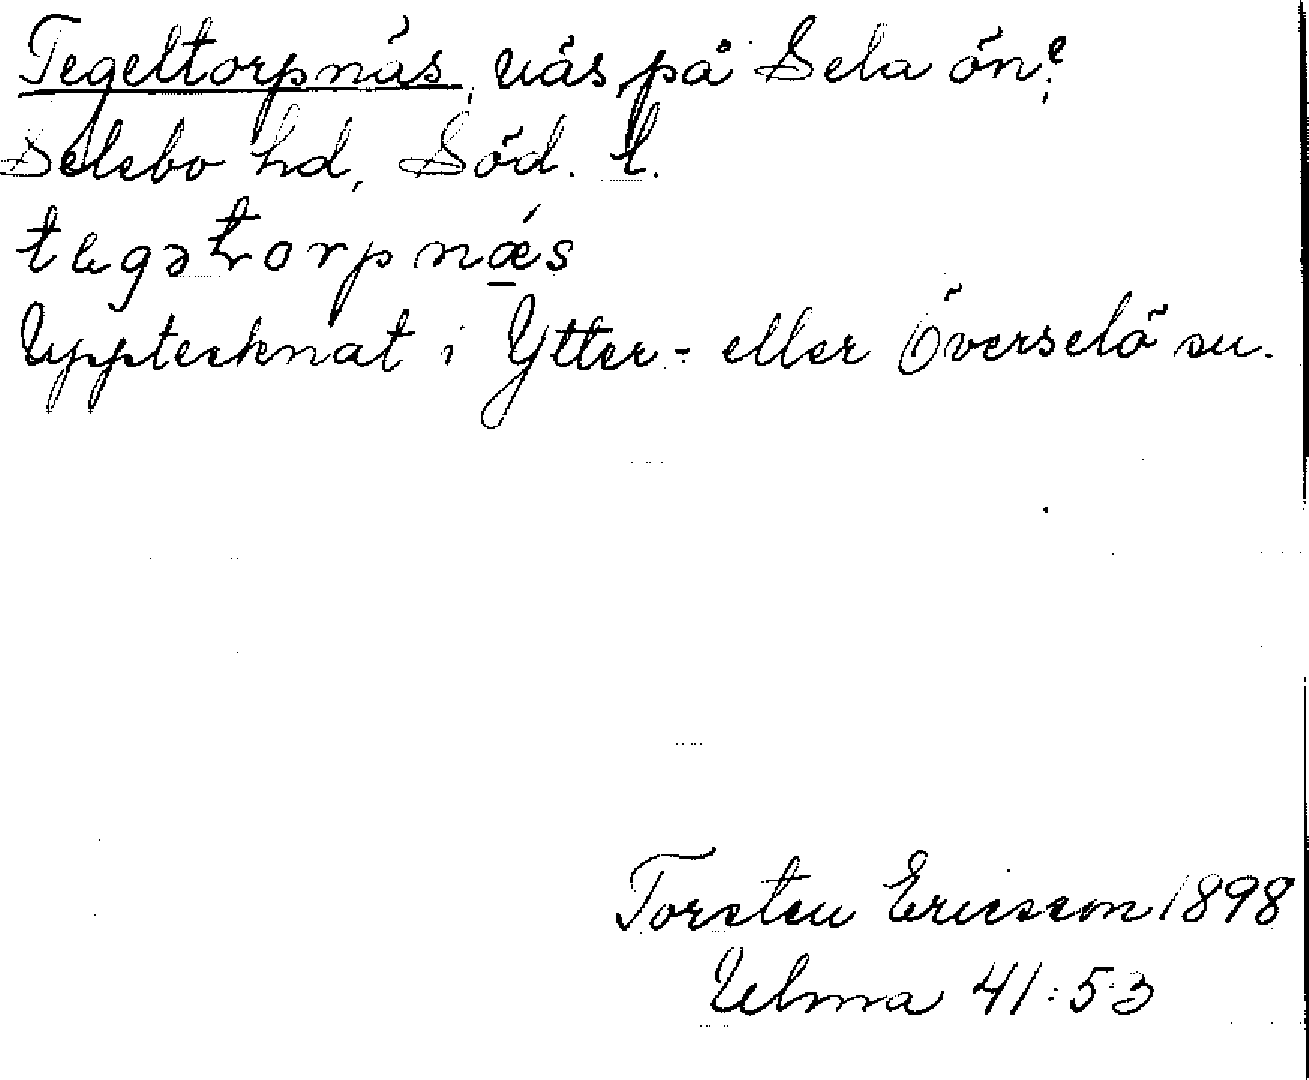 Tegeltorpnäs, näs på Sela ön?
Selebo hd, Söd. l.
Upptecknat i Ytter- eller Överselö sn.
Torsten Ericsson 1898
Ulma 41:53